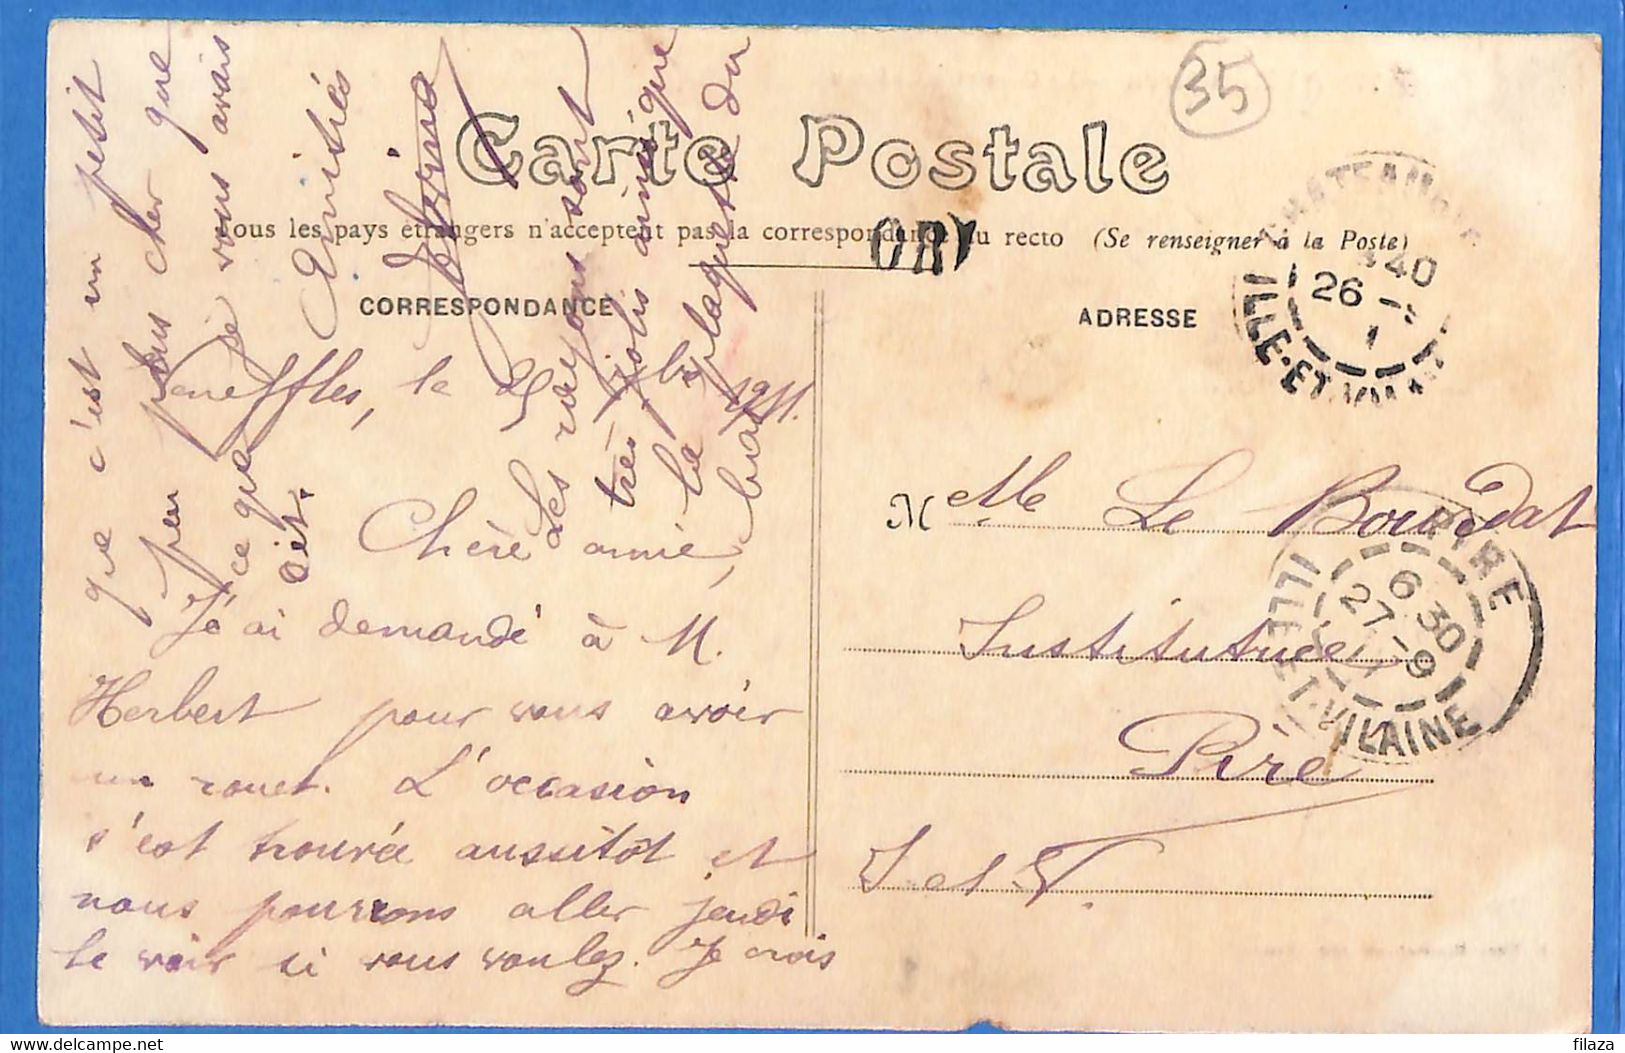 35
Carte Postale
Tous les pays étrangers n'acceptent pas la correspondance au recto (Se renseigner à la Poste)
ORI
CORRESPONDANCE
ADRESSE
le 25 1911.
Chère amie,
J'ai demandé à M.
Herbert pour vous avoir
un rouet. L'occasion
s'est trouvée aussitôt et
nous pourrons aller jeudi
le voir si vous voulez. Je crois
que c'est un petit
peu plus cher que
ce que je vous avais
dit.
Amitiés
Les rayons sont
très jolis ainsi que
la plaquette du
bas
Melle Le Bourdat
Institutrice
Piré
I et V.
26
1
ILLE-ET-VILAINE
PIRE
6 30
27 - 9
ILLE-ET-VILAINE
filaza